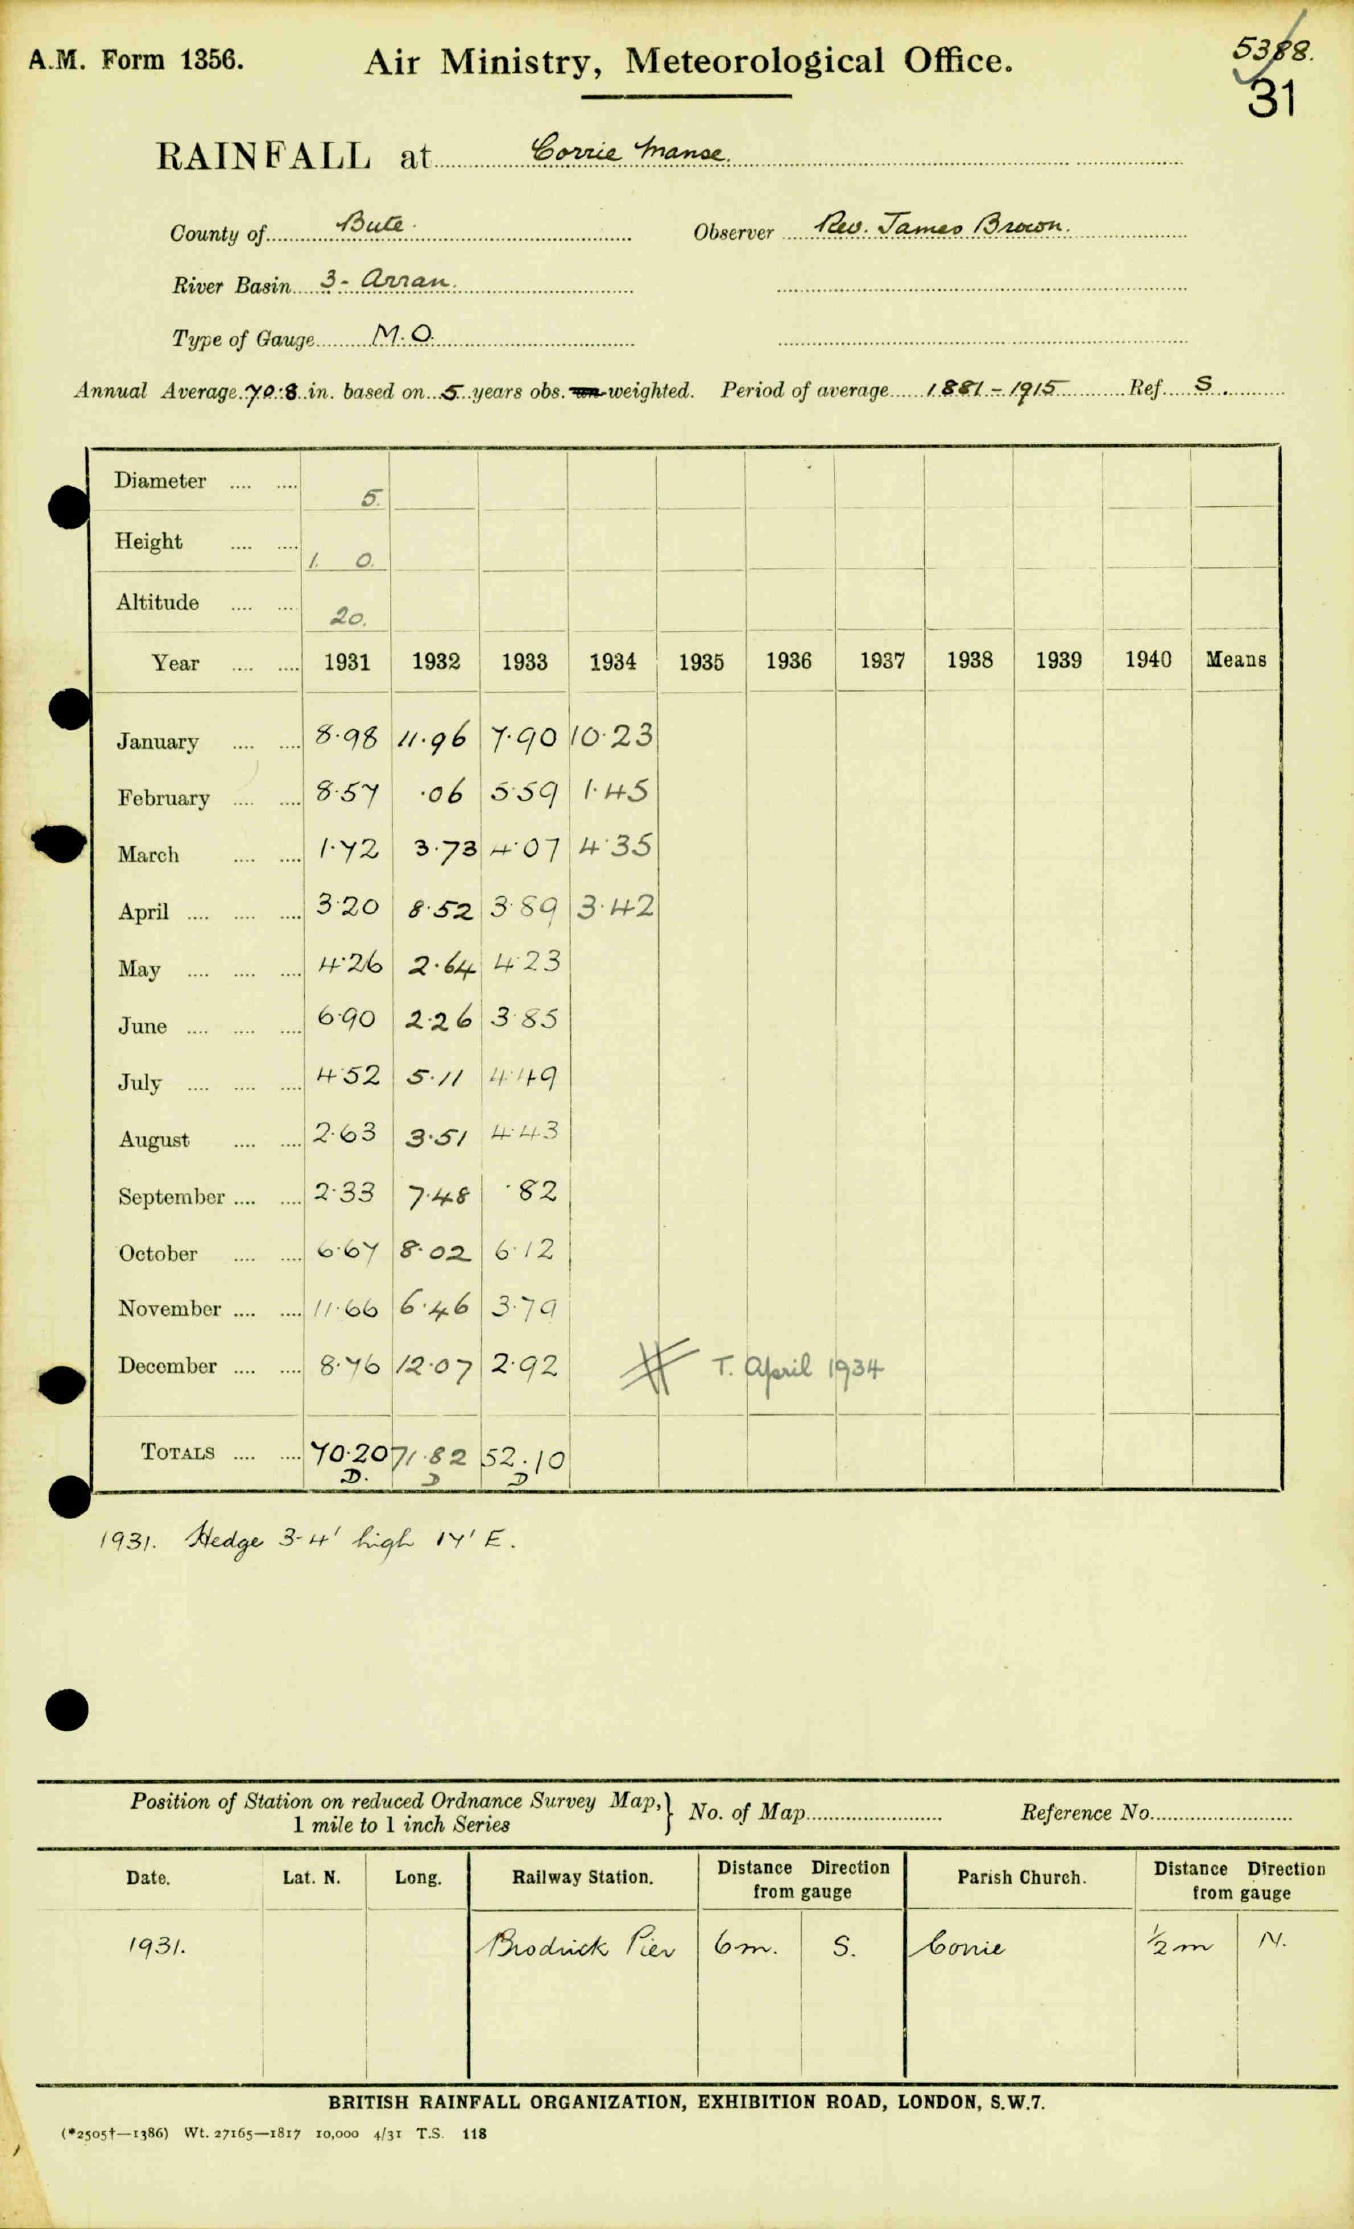 A.M. Form 1356.
Air Ministry, Meteorological Office.
5388.
31
RAINFALL at Corrie Manse.
County of Bute. Observer Rev. James Brown.
River Basin 3 - Arran.
Type of Gauge M.O.
Annual Average 70.8 in. based on 5 years obs. un-weighted. Period of average 1881-1915 Ref. S.
Diameter .... .... 5.
Height .... .... 1. 0.
Altitude .... .... 20.
Year .... .... 1931 1932 1933 1934 1935 1936 1937 1938 1939 1940 Means
January .... .... 8.98 11.96 7.90 10.23
February .... .... 8.57 .06 5.59 1.45
March .... .... 1.72 3.73 4.07 4.35
April .... .... .... 3.20 8.52 3.89 3.42
May .... .... .... 4.26 2.64 4.23
June .... .... .... 6.90 2.26 3.85
July .... .... .... 4.52 5.11 4.49
August .... .... 2.63 3.51 4.43
September .... .... 2.33 7.48 .82
October .... .... 6.67 8.02 6.12
November .... .... 11.66 6.46 3.79
December .... .... 8.76 12.07 2.92 T. April 1934
TOTALS .... .... 70.20 71.82 52.10
D. D D
1931. Hedge 3-4' high 17' E.
Position of Station on reduced Ordnance Survey Map, } No. of Map Reference No.
1 mile to 1 inch Series
Date. Lat. N. Long. Railway Station. Distance Direction from gauge Parish Church. Distance Direction from gauge
1931. Brodick Pier 6m. S. Corrie ½ m N.
BRITISH RAINFALL ORGANIZATION, EXHIBITION ROAD, LONDON, S.W.7.
(*2505†—1386) Wt. 27165—1817 10,000 4/31 T.S. 118